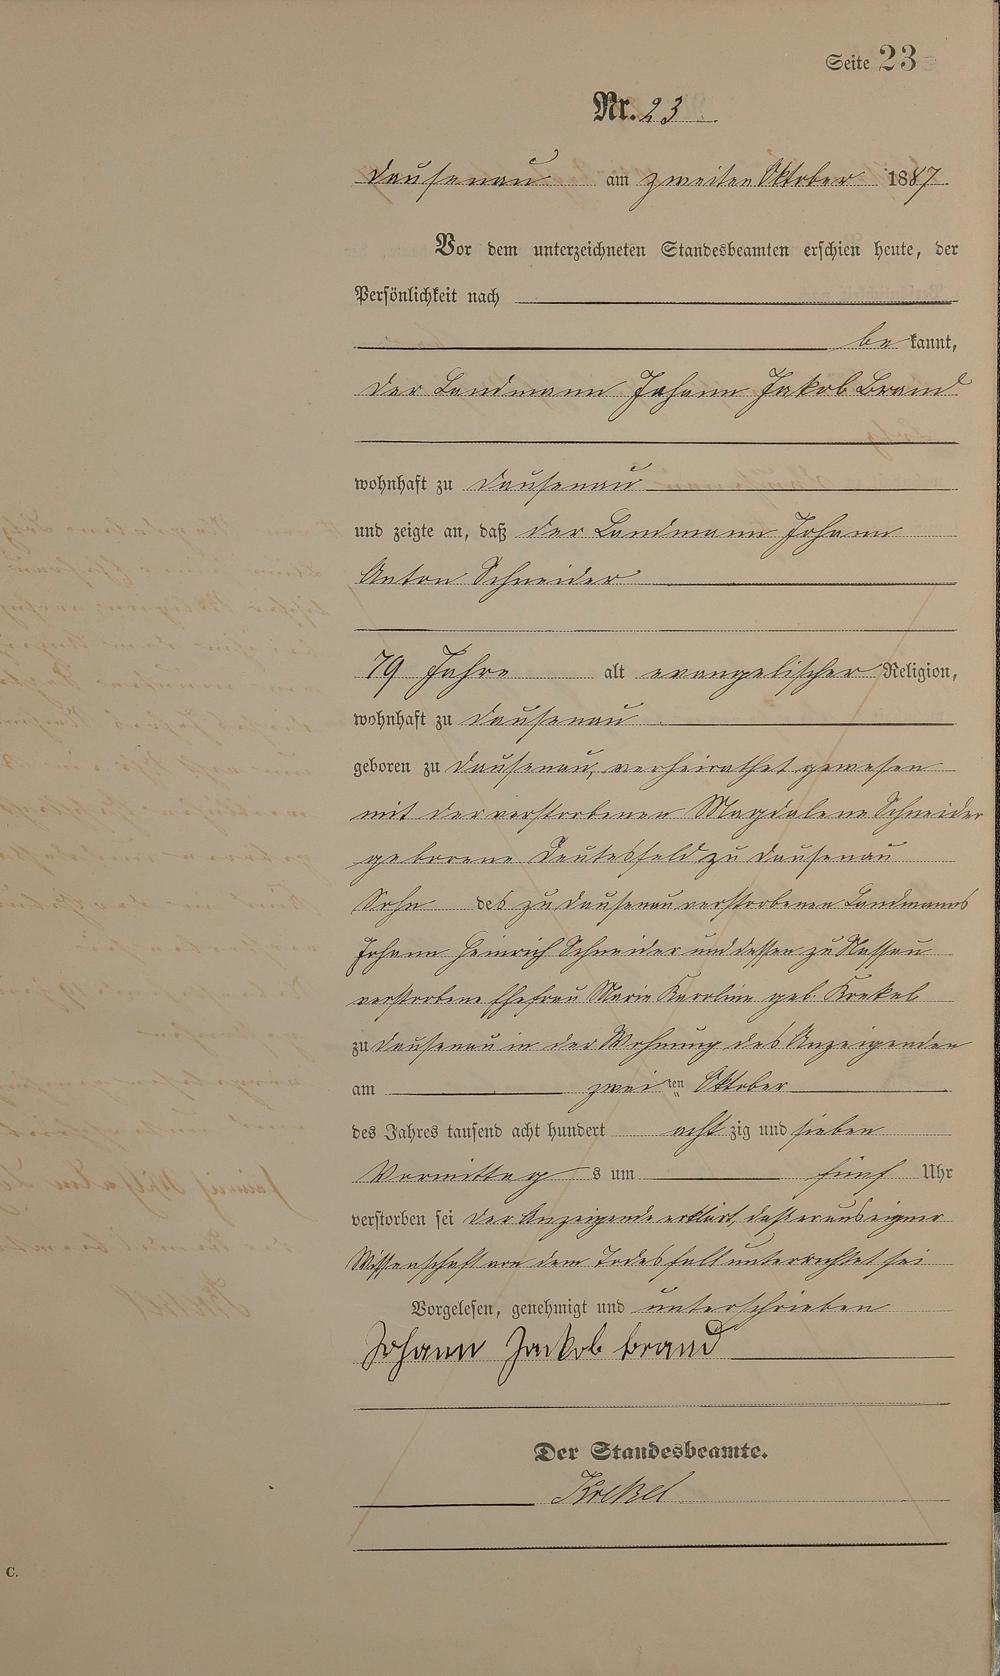 Seite 23
Nr. 23.
Dausenau am zweiten Oktober 1887.
Vor dem unterzeichneten Standesbeamten erschien heute, der
Persönlichkeit nach
be kannt,
der Landmann Johann Jakob Brand
wohnhaft zu Dausenau
und zeigte an, daß der Landmann Johann
Anton Schneider
79 Jahre alt evangelischer Religion,
wohnhaft zu Dausenau
geboren zu Dausenau, verheirathet gewesen
mit der verstorbenen Magdalene Schneider
geborene Deutesfeld zu Dausenau
Sohn des zu Dausenau verstorbenen Landmanns
Johann Heinrich Schneider und dessen zu Nassau
verstorbene Ehefrau Marie Karoline geb. Krekel
zu Dausenau in der Wohnung des Anzeigenden
am zweiten Oktober
des Jahres tausend acht hundert acht zig und sieben
Vormittag s um fünf Uhr
verstorben sei der Anzeigende erklärt, daß er aus eigner
Wissenschaft von dem Todesfall unterrichtet sei
Vorgelesen, genehmigt und unterschrieben
Johann Jackob Brand
Der Standesbeamte.
Krekel
C.